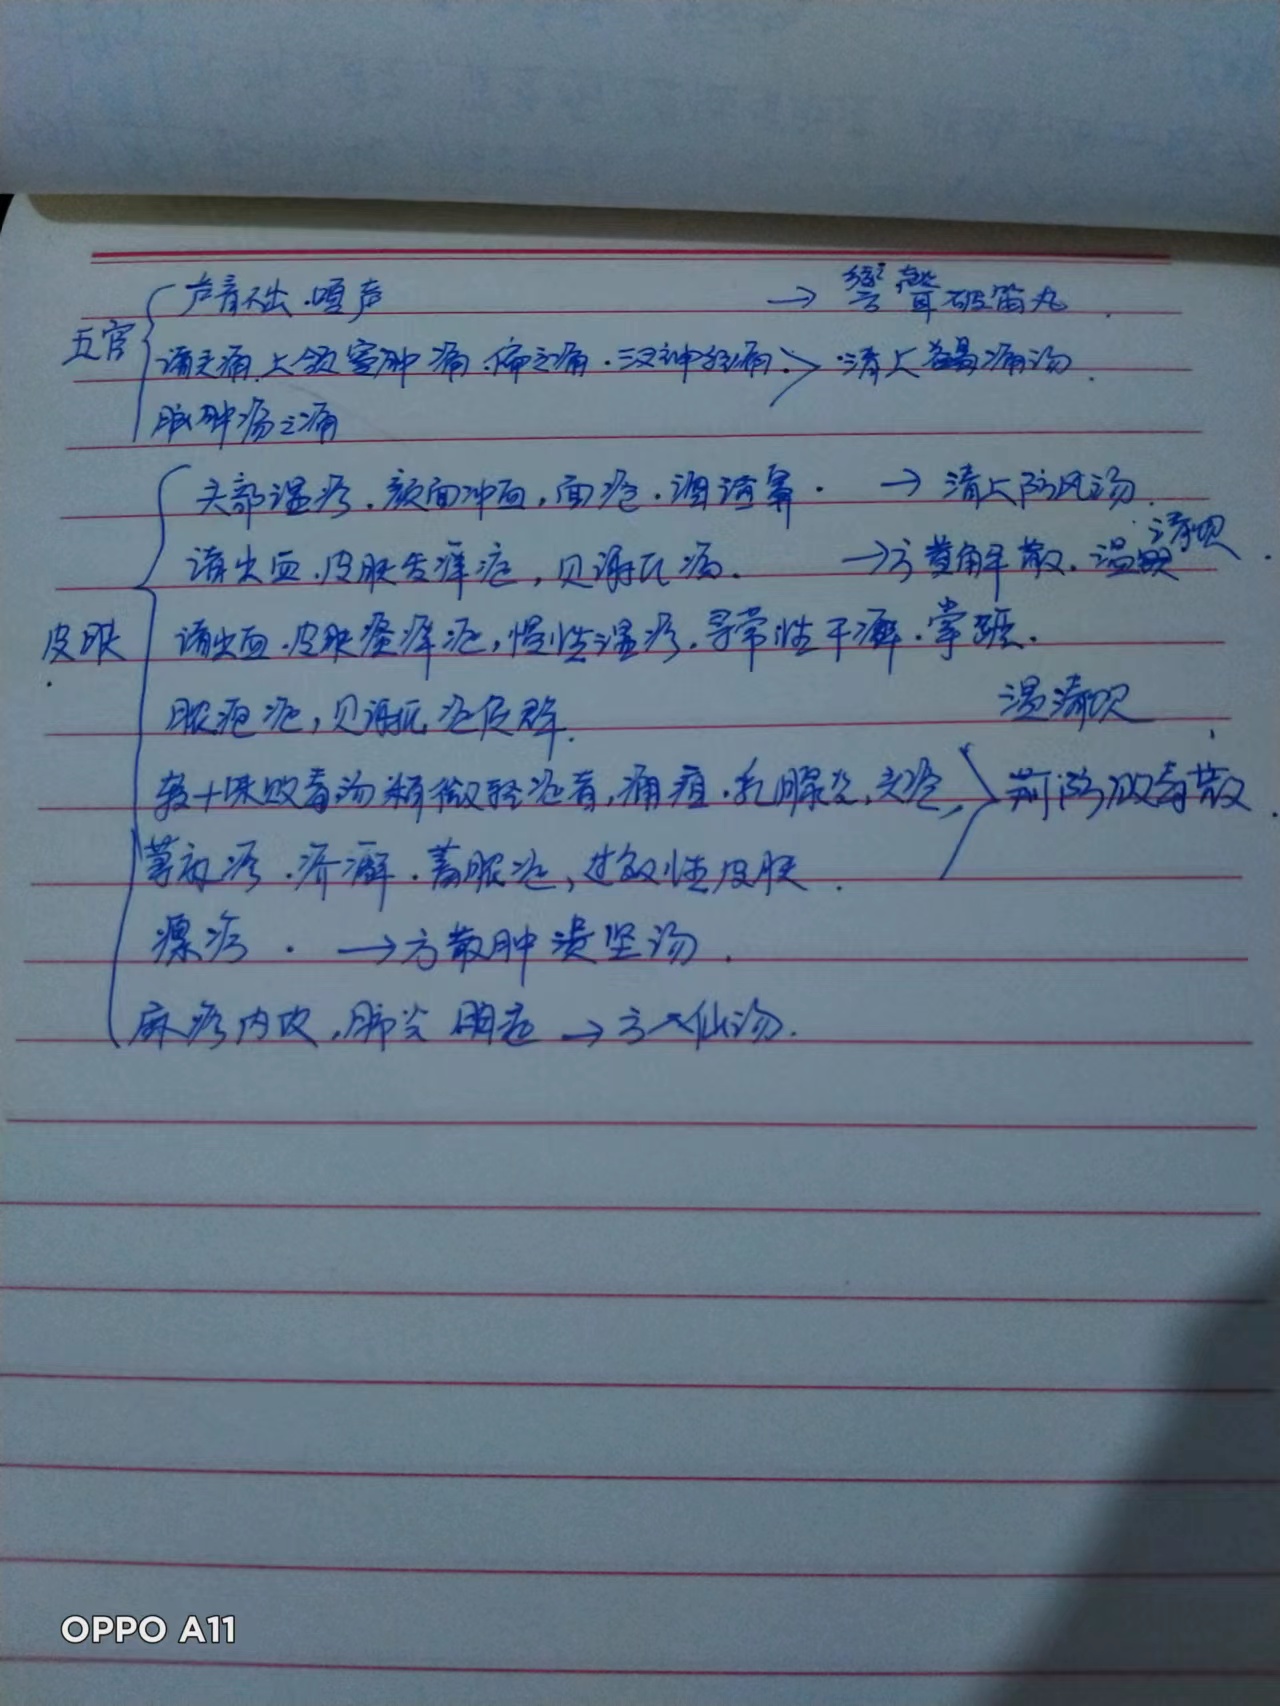 声音不出．哑声 → 響聲破笛丸．
五官
诸头痛．上颌窦肿痛．偏头痛．三叉神经痛． 清上蠲痛汤．
脑肿疡之痛
头部湿疹．颜面冲血，面疱．酒渣鼻． → 清上防风汤．
诸出血．皮肤发痒症，贝谢氏病． →方黄解散．温清饮．
诸出血．皮肤瘙痒症，慢性湿疹．寻常性干癣．掌蹠
皮肤
脓疱症，贝谢氏症候群． 温清饮
较十味败毒汤稍微轻症者，痈疽．乳腺炎， 荆防败毒散．
荨麻疹．疥癣．蓄脓症，过敏性皮肤．
瘰疬． →方散肿溃坚汤．
麻疹内攻，肺炎 →方 仙汤．
OPPO A11